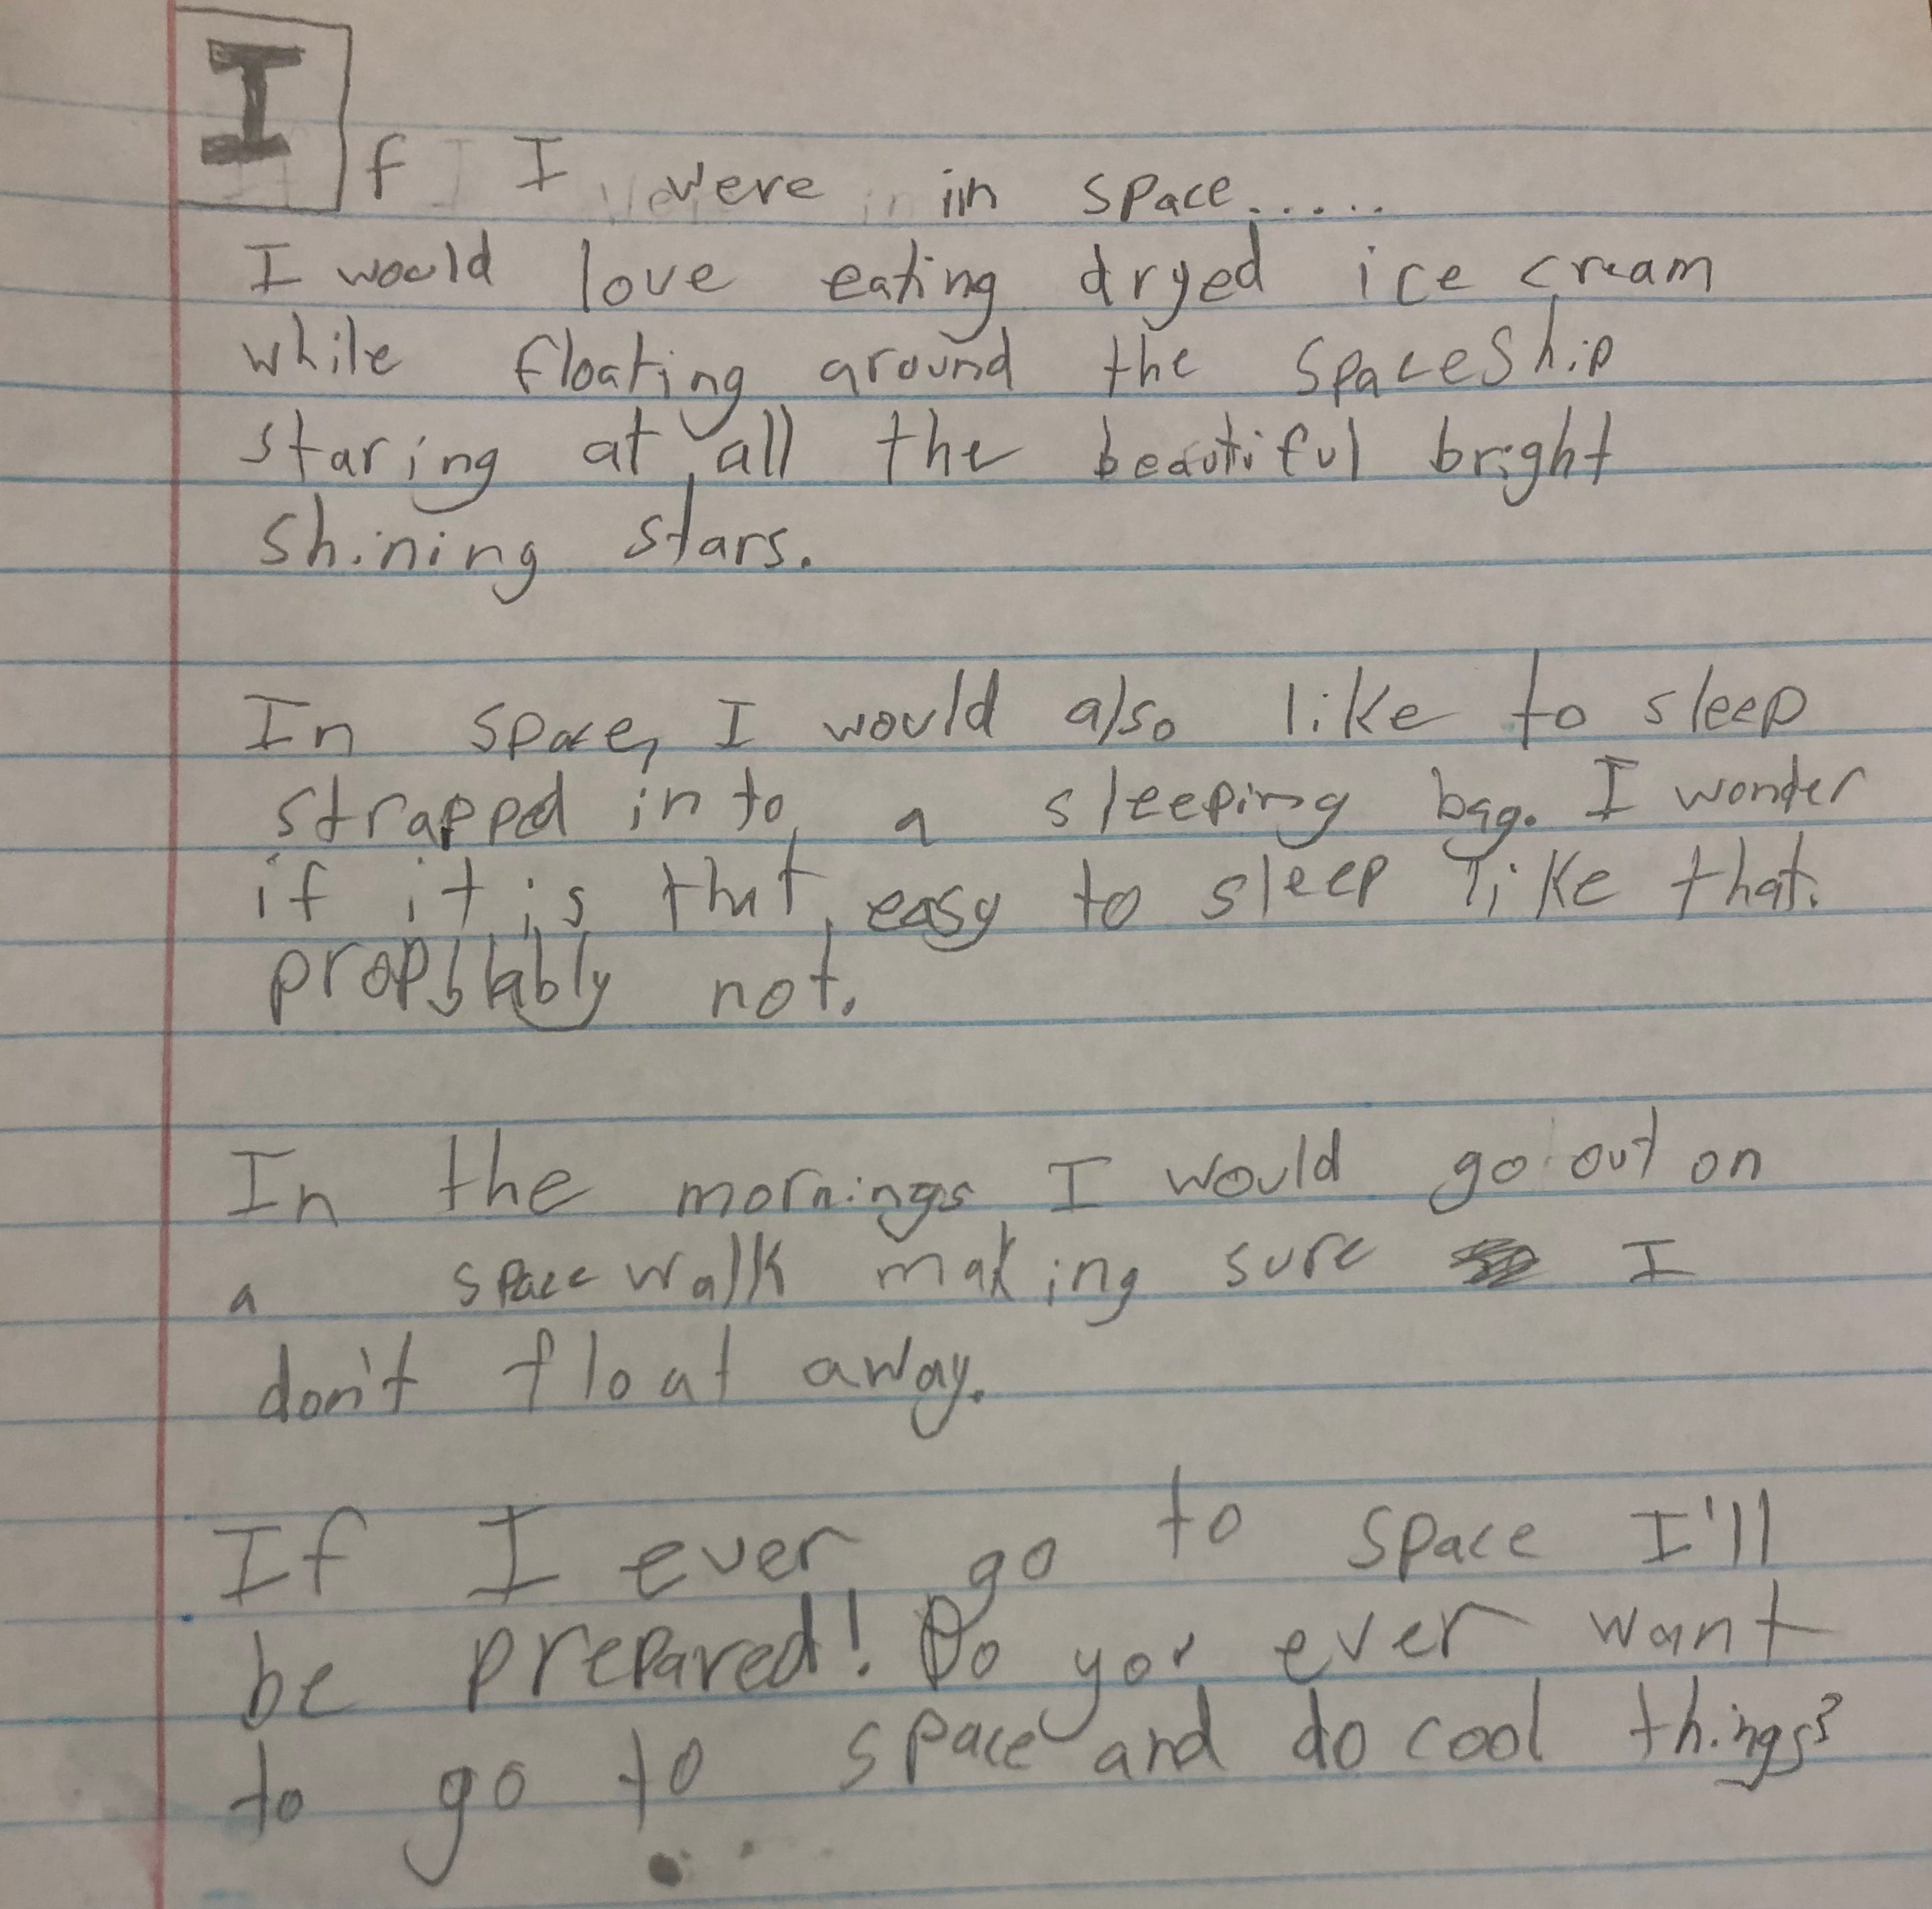 If I were in space.....
I would love eating dryed ice cream
while floating around the spaceship
staring at all the beautiful bright
shining stars.
In space, I would also like to sleep
strapped into a sleeping bag. I wonder
if it is that easy to sleep like that.
not.
In the mornings I would go out on
a space walk making sure I
don't float away.
If I ever go to space I'll
be prepared! Do you ever want
to go to space and do cool things?